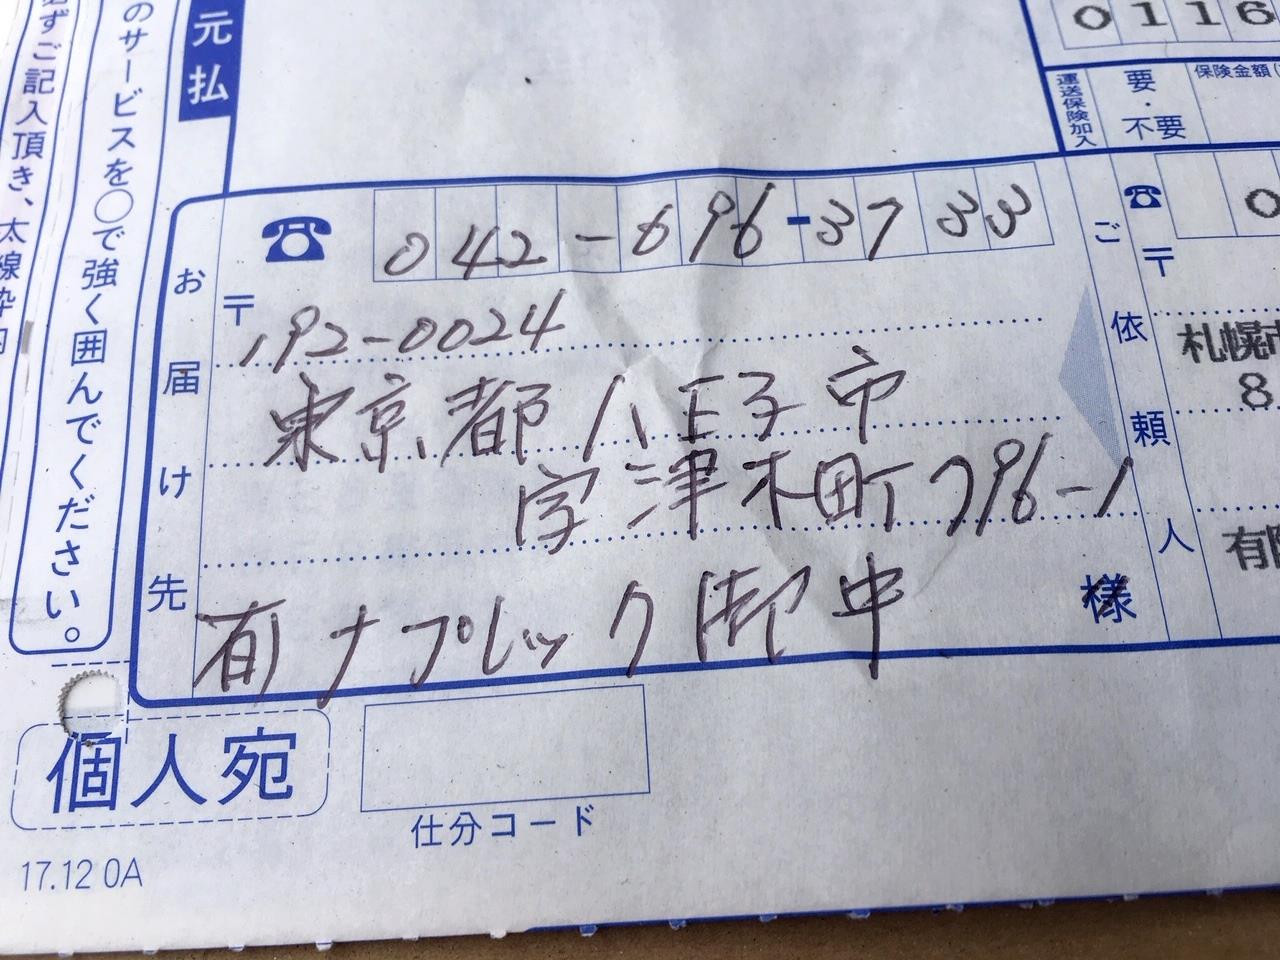 必ずご記入頂き、太線枠内
のサービスを○で強く囲んでください。
元払
0116
運送保険加入
要・不要
保険金額(
お届け先
☎ 042-696-3733
〒 192-0024
東京都八王子市
宇津木町796-1
有ナプレック御中
様
ご依頼人
☎ 0
〒
札幌市
8
有限
個人宛
仕分コード
17.12 0A